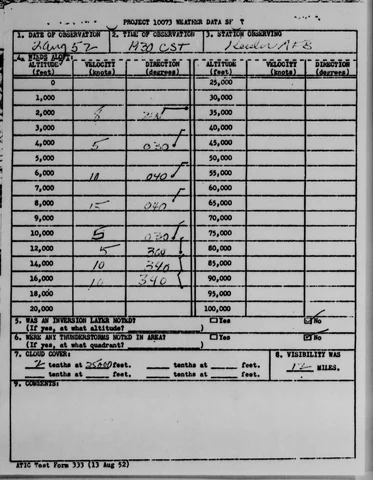 PROJECT 10073 WEATHER DATA
1. DATE OF OBSERVATION 2. TIME OF OBSERVATION 3. STATION OBSERVING
2 Aug 52 1430 CST
4. WINDS ALOFT:
ALTITUDE VELOCITY DIRECTION ALTITUDE VELOCITY DIRECTION
(feet) (knots) (degrees) (feet) (knots) (degrees)
0 25,000
1,000 30,000
2,000 8 35,000
3,000 40,000
4,000 5 030 45,000
5,000 50,000
6,000 10 040 55,000
7,000 60,000
8,000 15 040 65,000
9,000 70,000
10,000 5 030 75,000
12,000 5 360 80,000
14,000 10 340 85,000
16,000 10 340 90,000
18,000 95,000
20,000 100,000
5. WAS AN INVERSION LAYER NOTED? Yes No
(If yes, at what altitude? )
6. WERE ANY THUNDERSTORMS NOTED IN AREA? Yes No
(If yes, at what quadrant? )
7. CLOUD COVER: 8. VISIBILITY WAS
2 tenths at 25000 feet. tenths at feet. 12 MILES.
tenths at feet. tenths at feet.
9. COMMENTS:
ATIC Test Form 333 (13 Aug 52)